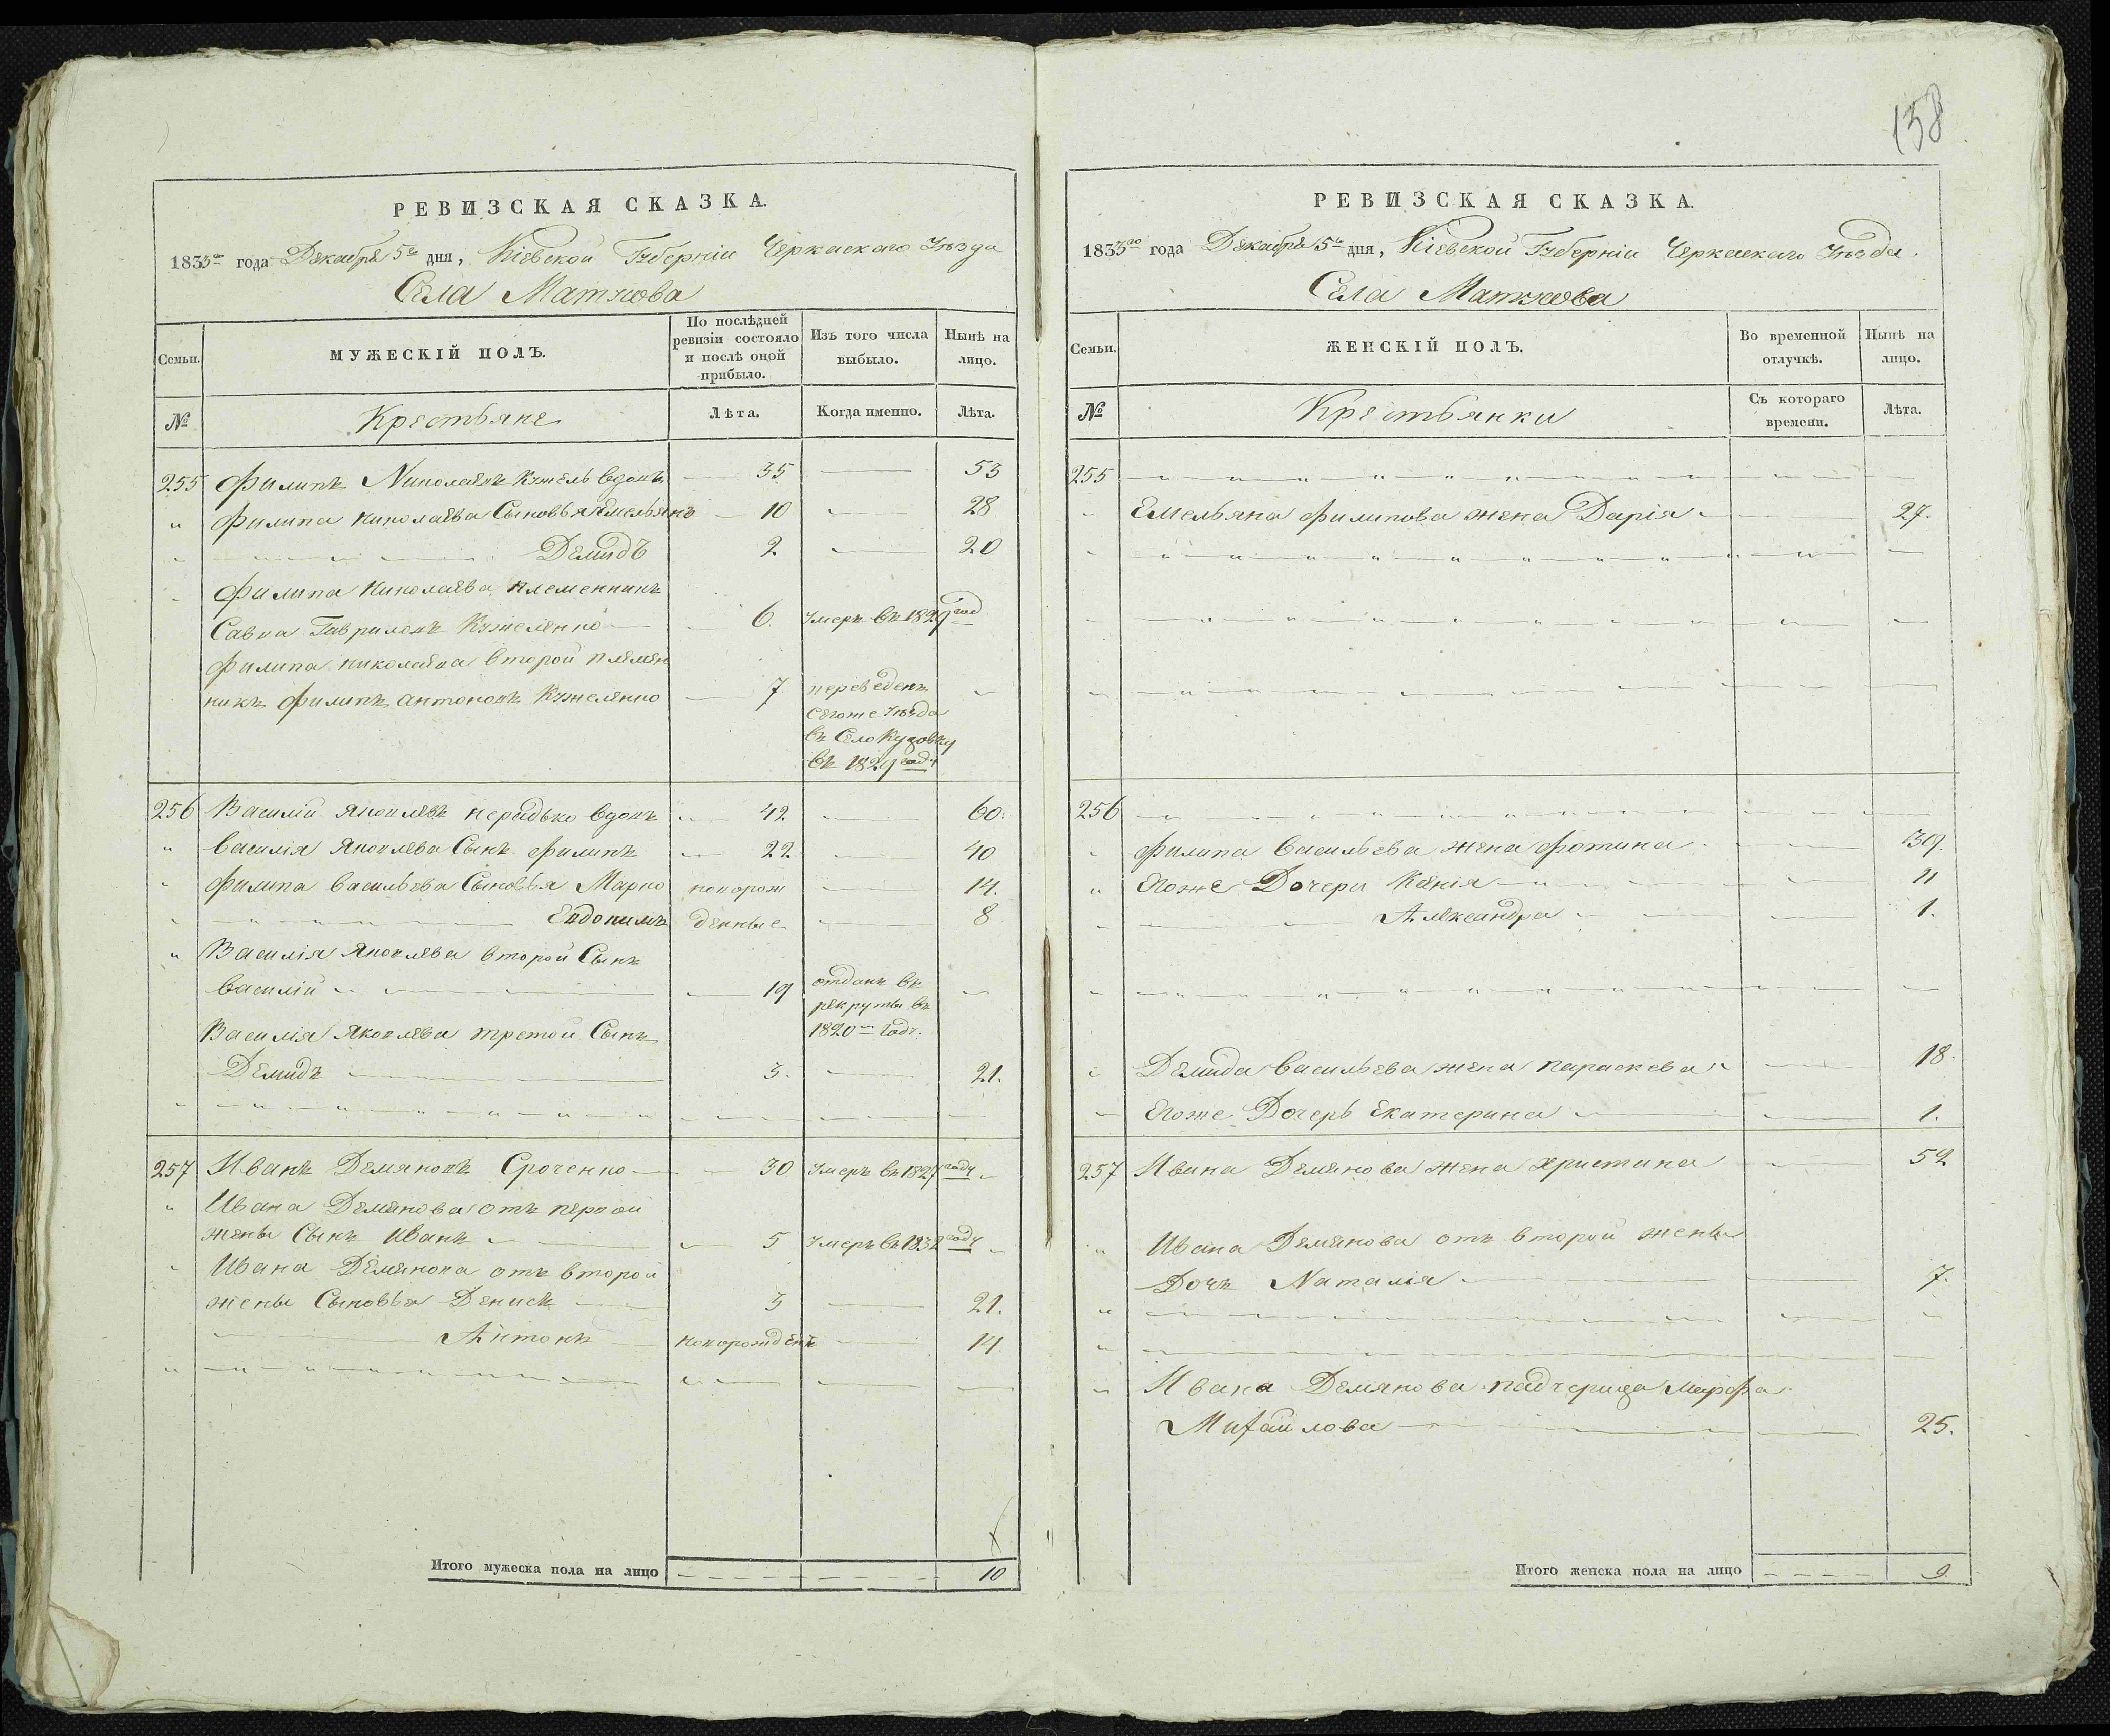 158
РЕВИЗСКАЯ СКАЗКА.
1833го года Декабря 5го дня, Кіевской Губерніи Черкаскаго Уѣзда
Села Матусова
Семьи.
МУЖЕСКІЙ ПОЛЪ.
По послѣдней ревизіи состояло и послѣ оной прибыло.
Изъ того числа выбыло.
Нынѣ на лицо.
№
Крестьяне
Лѣта.
Когда именно.
Лѣта.
255 Филипъ Николаевъ Кужель вдовъ 35 53
" Филипа Николаева Сыновья Емельянъ 10 28
Демидъ 2 20
Филипа Николаева племенникъ
Савка Гавриловъ Кужеленко 6. Умеръ въ 1829 год
Филипа Николаева второй племен
никъ Филипъ Антоновъ Кужеленко 7 переведенъ
сегоже Уѣзда
въ Село
въ 1829 году
256 Василій Яковлевъ вдовъ 42 60.
" Василія Яковлева Сынъ Филипъ 22 40
Филипа Васильева Сыновья Марко новорож 14.
Евдокимъ денные 8
" Василія Яковлева второй Сынъ
Василій 19 отданъ въ
рекруты въ
Василія Яковлева третой Сынъ 1820м Году.
Демидъ 3. 21.
257 Иванъ Демяновъ Сроченко 30 Умеръ въ 1827 году
" Ивана Демянова отъ первой
жены Сынъ Иванъ 5 Умеръ въ 1832 году
Ивана Демянова отъ второй
жены Сыновья Денисъ 3 21.
Антонъ новорожденъ 14
Итого мужеска пола на лицо 10
РЕВИЗСКАЯ СКАЗКА.
1833го года Декабря 5го дня, Кіевской Губерніи Черкаскаго Уѣзда.
Села Матусова
Семьи.
ЖЕНСКІЙ ПОЛЪ.
Во временной отлучкѣ.
Нынѣ на лицо.
№
Крестьянки
Съ котораго времени.
Лѣта.
255
Емельяна Филипова жена Дарія 27.
256
Филипа Васильева жена Фотина 39.
" Егоже Дочери Ксенія 11
Александра 1.
Демида Васильева жена Параскева 18
Егоже Дочерь Екатерина 1.
257 Ивана Демянова жена Христина 52
" Ивана Демянова отъ второй жены
Дочь Наталія 7.
Ивана Демянова падчерица Марфа
Михайлова 25.
Итого женска пола на лицо 9